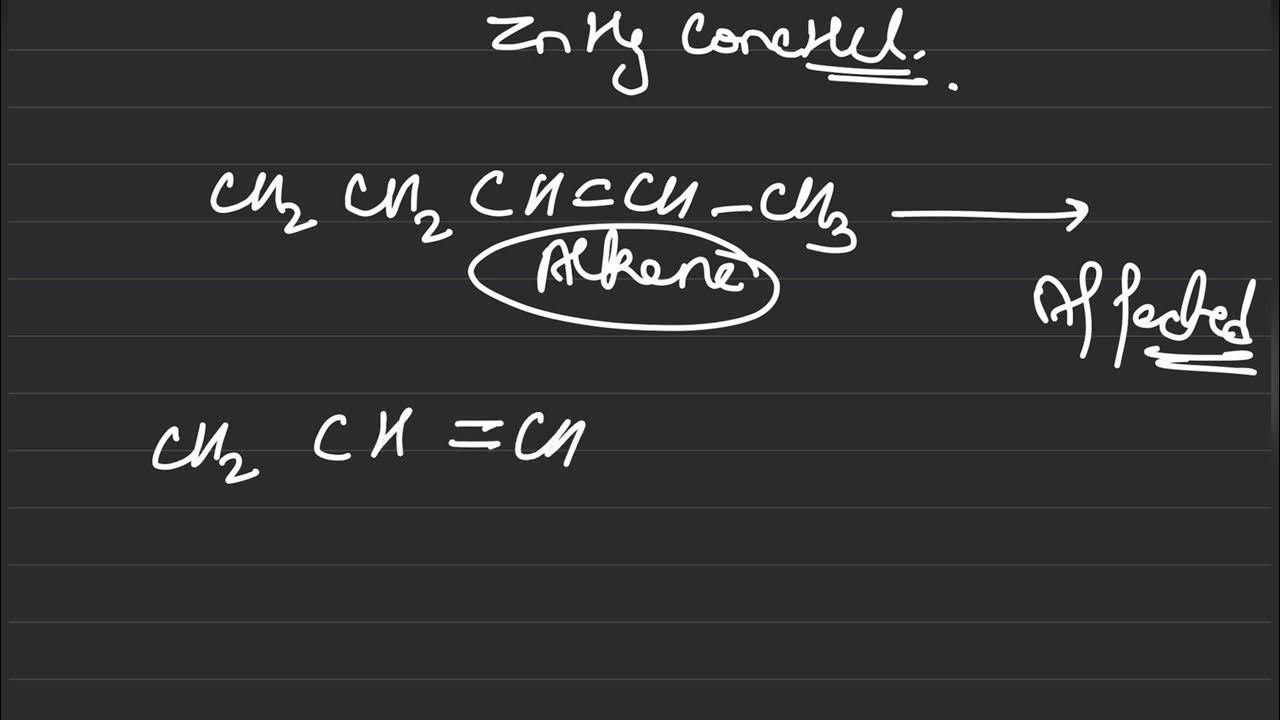 Zn Hg Conc HCl.
CH₂ CH₂ CH=CH-CH₃ →
Alkene
Affected
CH₂ CH=CH